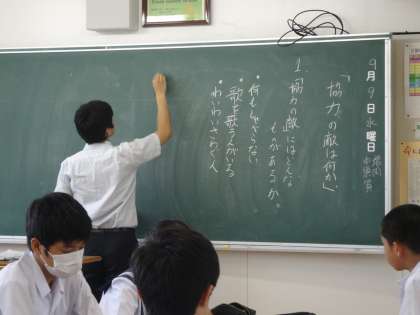 9月9日水曜日
「協力」の敵は何か
1.協力の敵にはどんな
ものがあるか。
・何もしゃべらない
・歌を歌う人がいる
・わいわいさわぐ人